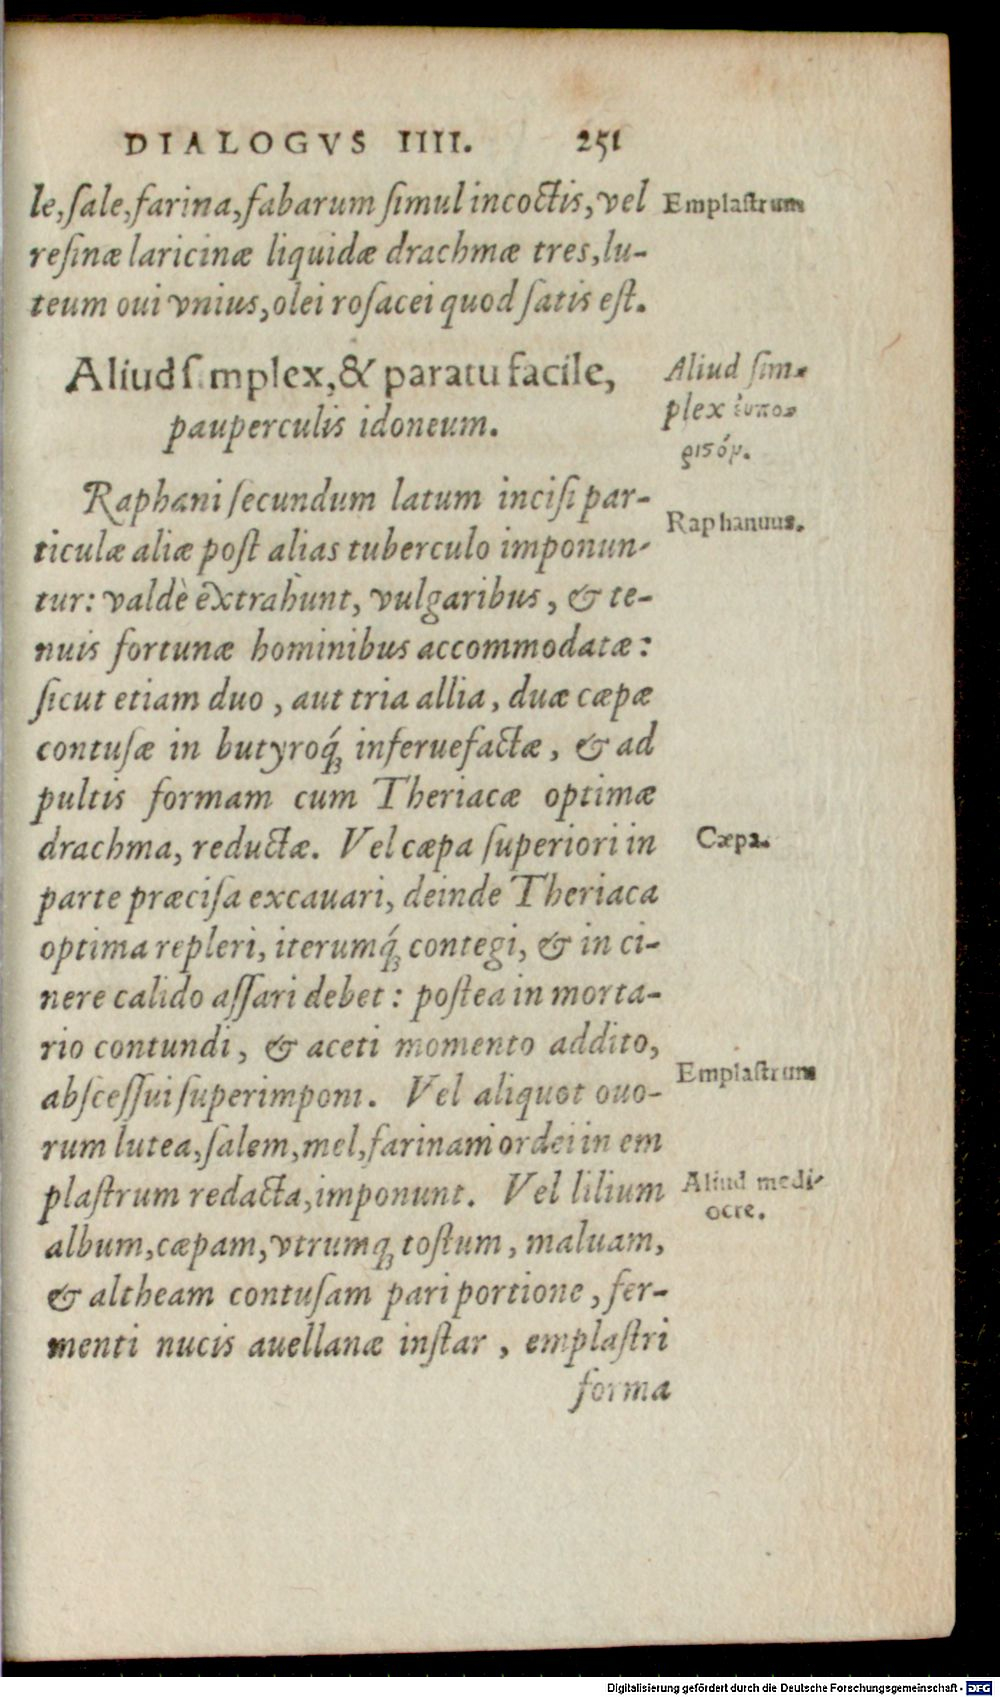 DIALOGVS IIII. 251
le, sale, farina, fabarum simul incoctis, vel
Emplastrum
resinæ laricinæ liquidæ drachmæ tres, lu-
teum oui vnius, olei rosacei quod satis est.
Aliud simplex, & paratu facile,
pauperculis idoneum.
Aliud sim-
plex ἐυπο-
ριστόν.
Raphani secundum latum incisi par-
ticulæ aliæ post alias tuberculo imponun-
Raphanuus.
tur: valdè extrahunt, vulgaribus, & te-
nuis fortunæ hominibus accommodatæ:
sicut etiam duo, aut tria allia, duæ cæpæ
contusæ in butyroq́; inferuefactæ, & ad
pultis formam cum Theriacæ optimæ
drachma, reductæ. Vel cæpa superiori in
Cæpa.
parte præcisa excauari, deinde Theriaca
optima repleri, iterumq́; contegi, & in ci-
nere calido assari debet: postea in morta-
rio contundi, & aceti momento addito,
Emplastrum
abscessui superimponi. Vel aliquot ouo-
rum lutea, salem, mel, farinam ordei in em
plastrum redacta, imponunt. Vel lilium
Aliud medi-
ocre.
album, cæpam, vtrumq; tostum, maluam,
& altheam contusam pari portione, fer-
menti nucis auellanæ instar, emplastri
forma
Digitalisierung gefördert durch die Deutsche Forschungsgemeinschaft - DFG